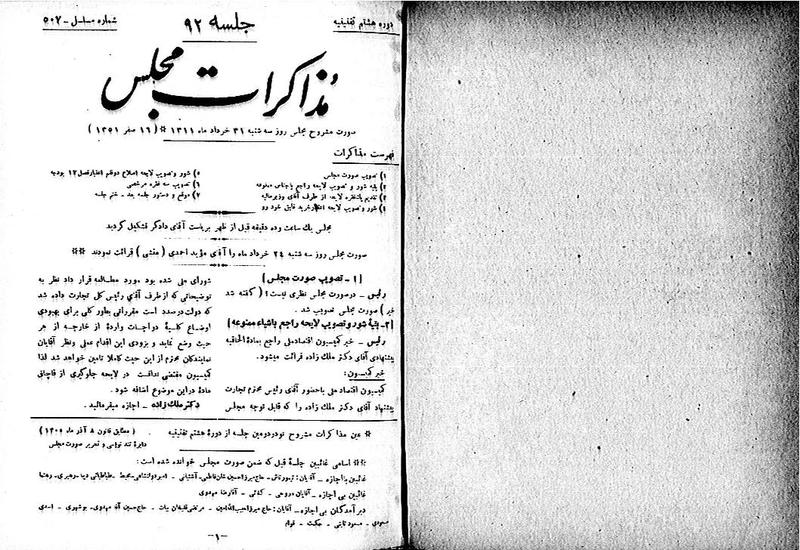 دوره هشتم تقنینیه
جلسه ۹۲
شماره مسلسل - ۵۰۷
مذاکرات مجلس
صورت مشروح مجلس روز سه شنبه ۳۱ خرداد ماه ۱۳۱۱ * (۱۶ صفر ۱۳۵۱)
فهرست مذاکرات
۱) تصویب صورت مجلس
۲) بقیه شور و تصویب لایحه راجع باجناس ممنوعه
۳) تقدیم یکفقره لایحه از طرف آقای وزیر مالیه
۴) شور و تصویب لایحه خرید قایق خود رو
۵) شور و تصویب لایحه اصلاح دو قلم اعتبار فصل ۱۲ بودجه
۶) تصویب سه فقره مرخصی
۷) موقع و دستور جلسه بعد - ختم جلسه
مجلس یك ساعت وده دقیقه قبل از ظهر بریاست آقای دادگر تشکیل گردید
صورت مجلس روز سه شنبه ۲۴ خرداد ماه را آقای مؤید احمدی (منشی) قرائت نمودند **
[۱ - تصویب صورت مجلس]
رئیس - درصورت مجلس نظری نیست؟ (گفته شد
خیر) صورت مجلس تصویب شد.
[۲- بقیۀ شور و تصویب لایحه راجع باشیاء ممنوعه]
رئیس - خبر کمیسیون اقتصاد ملی راجع بمادۀ الحاقیه
پیشنهادی آقای دکتر ملك زاده قرائت میشود.
خبر کمیسیون:
کمیسیون اقتصاد ملی باحضور آقای رئیس محترم تجارت
پیشنهاد آقای دکتر ملك زاده را که قابل توجه مجلس
شورای ملی شده بود مورد مطالعه قرار داد نظر به
توضیحاتی که از طرف آقای رئیس کل تجارت داده شد
که دولت درصدد است مقرراتی بطور کلی برای بهبودی
اوضاع کلیۀ دواجات واردۀ از خارجه از هر
حیث وضع نماید و بزودی این اقدام عملی ونظر آقایان
نمایندگان محترم از این حیث کاملا تامین خواهد شد لذا
کمیسیون مقتضی ندانست در لایحه جلوگیری از قاچاق
مادۀ در این موضوع اضافه شود.
دکتر ملك زاده - اجازه میفرمائید.
* عین مذاکرات مشروح نود و دومین جلسه از دورۀ هشتم تقنینیه
(مطابق قانون ۸ آذر ماه ۱۳۰۵)
دایرۀ تند نویسی و تحریر صورت مجلس
** اسامی غائبین جلسۀ قبل که ضمن صورت مجلس خوانده شده است:
غائبین با اجازه - آقایان: تیمورتاش - حاج میرزا حسین خان فاطمی - آشتیانی - امیر دولتشاهی - محیط - طباطبائی دیبا - وهبری - رهنما
غائبین بی اجازه - آقایان مروعی - کفائی - آقا رضا مهدوی
دیر آمدگان بی اجازه - آقایان: حاج میرزا حبیب الله امین - مرتضی قلیخان بیات - حاج حسین آقا مهدوی - بوشهری - اسدی
مسعودی - مسعود ثابتی - حکمت - قوام
-۱-